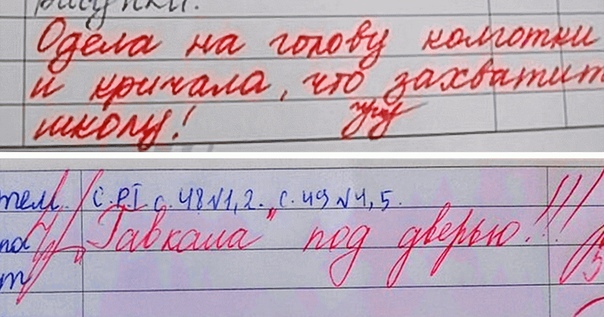 рисунки.
Одела на голову колготки
и кричала, что захватит
школу!
тел. С.РТ с. 48 №1, 2. с. 49 №4, 5.
"Гавкала" под дверью!!!